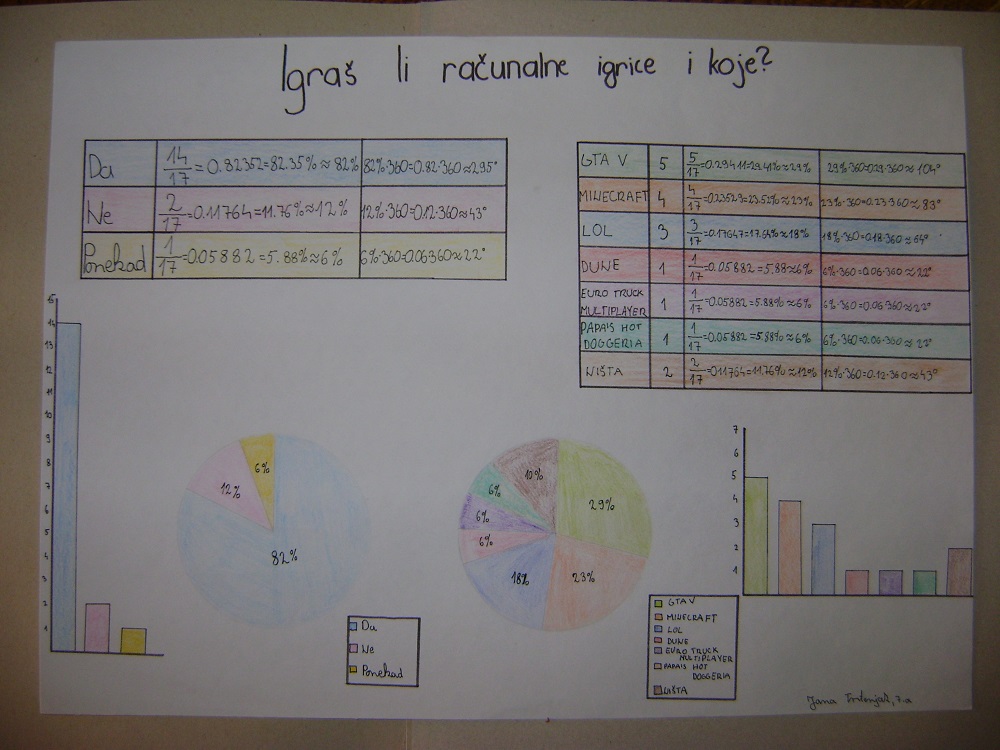 Igraš li računalne igrice i koje?
Da 14/17 = 0.82352=82.35% ≈ 82% 82%·360=0.82·360≈295°
Ne 2/17=0.11764=11.76%≈12% 12%·360=0.12·360≈43°
Ponekad 1/17=0.05882=5.88%≈6% 6%·360=0.06·360≈22°
GTA V 5 5/17=0.29411=29.41%≈29% 29%·360=0.29·360≈104°
MINECRAFT 4 4/17=0.23529=23.52%≈23% 23%·360=0.23·360≈83°
LOL 3 3/17=0.17647=17.64%≈18% 18%·360=0.18·360≈64°
DUNE 1 1/17=0.05882=5.88≈6% 6%·360=0.06·360≈22°
EURO TRUCK
MULTIPLAYER 1 1/17=0.05882=5.88%≈6% 6%·360=0.06·360≈22°
PAPA'S HOT
DOGGERIA 1 1/17=0.05882=5.88%≈6% 6%·360=0.06·360≈22°
NIŠTA 2 2/17=0.11764=11.76%≈12% 12%·360=0.12·360≈43°
15
14
13
12
11
10
9
8
7
6
5
4
3
2
1
6%
12%
82%
10%
6%
6%
6%
18%
23%
29%
7
6
5
4
3
2
1
Da
Ne
Ponekad
GTA V
MINECRAFT
LOL
DUNE
EURO TRUCK
MULTIPLAYER
PAPA'S HOT
DOGGERIA
NIŠTA
Jana 7.a